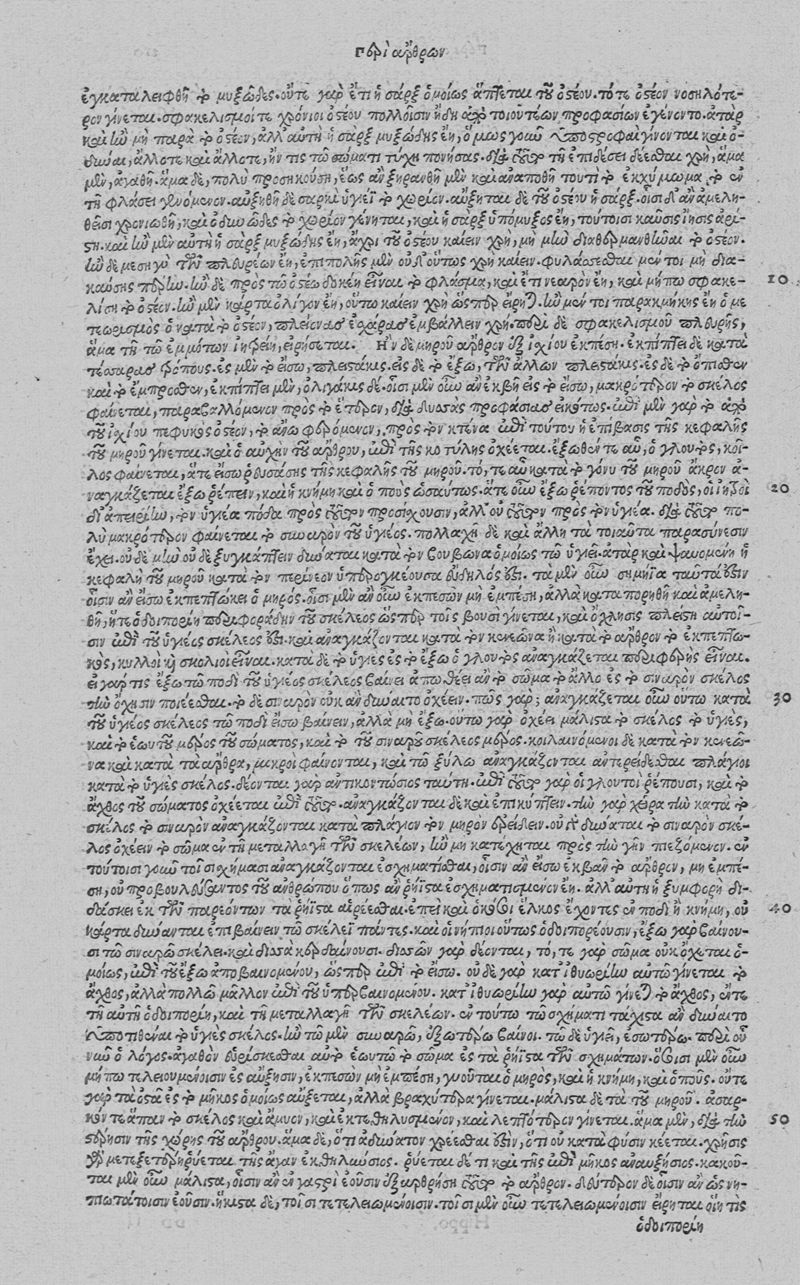 περὶ ἄρθρων
ἐγκαταλειφθῇ τὸ μυξῶδες. οὔτε γὰρ ἔτι ἡ σὰρξ ὁμοίως ἅπτεται τοῦ ὀστέου. τό τε ὀστέον νοσηλότε-
ρον γίνεται. σφακελισμοί τε χρόνιοι ὀστέου πολλοῖσιν ἤδη ἀπὸ τοιουτέων προφασίων ἐγένοντο. ἀτὰρ
καὶ ἢν μὴ παρὰ τὸ ὀστέον, ἀλλ' αὐτὴ ἡ σὰρξ μυξώδης ἔῃ, ὅμως γοῦν ὑποστροφαὶ γίνονται καὶ ὀ-
δύναι, ἄλλοτε καὶ ἄλλοτε, ἤν τις τῷ σώματι τύχῃ πονήσας. διὰ τοῦτο τῇ ἐπιδέσει δέεσθαι χρὴ, ἅμα
μὲν, ἀγαθῇ. ἅμα δὲ, πολὺ προσηκούσῃ, ἕως ἂν ξηρανθῇ μὲν καὶ ἀναποθῇ τουτὶ τὸ ἐκχύμωμα τὸ ἐν
τῇ φλάσει γενόμενον. αὐξηθῇ δὲ σαρκὶ ὑγιέϊ τὸ χωρίον. αὔξηται δὲ τοῦ ὀστέου ἡ σάρξ. οἷσι δ' ἂν ἀμελη-
θεῖσι χρονιωθῇ, καὶ ὀδυνῶδες τὸ χωρίον γένηται, καὶ ἡ σὰρξ ὑπόμυξος ἔῃ, τούτοισι καῦσις ἴησις ἀρί-
στη. καὶ ἢν μὲν αὐτὴ ἡ σὰρξ μυξώδης ἔῃ, ἄχρι τοῦ ὀστέου καίειν χρὴ, μὴ μὴν διαθερμανθῆναι τὸ ὀστέον.
ἢν δὲ μεσηγὺ τῶν πλευρέων ἔῃ, ἐπιπολῆς μὲν οὐδ' οὕτως χρὴ καίειν. φυλάσσεσθαι μέντοι μὴ δια-
καύσῃς πέρην. ἢν δὲ πρὸς τῷ ὀστέῳ δοκέῃ εἶναι τὸ φλάσμα, καὶ ἔτι νεαρὸν ἔῃ, καὶ μήπω σφακε- 10
λίσῃ τὸ ὀστέον. ἢν μὲν κάρτα ὀλίγον ἔῃ, οὕτω καίειν χρὴ ὥσπερ εἴρηται. ἢν μέντοι παραμήκης ἔῃ ὁ με
τεωρισμὸς ὁ κατὰ τὸ ὀστέον, πλείονας ἐσχάρας ἐμβάλλειν χρή. περὶ δὲ σφακελισμοῦ πλευρῆς,
ἅμα τῇ τῶν ἐμμότων ἰητρείῃ, εἰρήσεται. Ἢν δὲ μηροῦ ἄρθρον ἐξ ἰσχίου ἐκπέσῃ. ἐκπίπτει δὲ κατὰ
τέσσαρας τρόπους. ἐς μὲν τὸ εἴσω, πλειστάκις. εἰς δὲ τὸ ἔξω, τῶν ἄλλων πλειστάκις. ἐς δὲ τὸ ὄπισθεν
καὶ τὸ ἔμπροσθεν, ἐκπίπτει μὲν, ὀλιγάκις δέ. οἷσι μὲν οὖν ἂν ἐκβῇ εἰς τὸ εἴσω, μακρότερον τὸ σκέλος
φαίνεται, παραβαλλόμενον πρὸς τὸ ἕτερον, διὰ δισσὰς προφάσιας εἰκότως. ἐπὶ μὲν γὰρ τὸ ἀπὸ
τοῦ ἰσχίου πεφυκὸς ὀστέον, τὸ ἄνω φερόμενον, πρὸς τὸν κτένα ἐπὶ τούτου ἡ ἐπίβασις τῆς κεφαλῆς
τοῦ μηροῦ γίνεται. καὶ ὁ αὐχὴν τοῦ ἄρθρου, ἐπὶ τῆς κοτύλης ὀχέεται. ἔξωθέν τε αὖ, ὁ γλουτὸς, κοῖ-
λος φαίνεται, ἅτε εἴσω ῥευσάσης τῆς κεφαλῆς τοῦ μηροῦ. τό, τε αὖ κατὰ τὸ γόνυ τοῦ μηροῦ ἄκρον ἀ-
ναγκάζεται ἔξω ῥέπειν, καὶ ἡ κνήμη καὶ ὁ ποὺς ὡσαύτως. ἅτε οὖν ἔξω ῥέποντος τοῦ ποδὸς, οἱ ἰητροὶ 20
δι' ἀπειρίην, τὸν ὑγιέα πόδα πρὸς τοῦτον προσίσχουσιν, ἀλλ' οὐ τοῦτον πρὸς τὸν ὑγιέα. διὰ τοῦτο πο-
λὺ μακρότερον φαίνεται τὸ σιναρὸν τοῦ ὑγιέος. πολλαχῇ δὲ καὶ ἄλλῃ τὰ τοιαῦτα παρασύνεσιν
ἔχει. οὐδὲ μὴν οὐδὲ ξυγκάμπτειν δύναται κατὰ τὸν βουβῶνα ὁμοίως τῷ ὑγιεῖ. ἀτὰρ καὶ ψαυομένη ἡ
κεφαλὴ τοῦ μηροῦ κατὰ τὸν περίνεον ὑπερογκέουσα εὔδηλός ἐστι. τὰ μὲν οὖν σημήϊα ταῦτά ἐστιν
οἷσιν ἂν εἴσω ἐκπεπτώκει ὁ μηρός. οἷσι μὲν ἂν οὖν ἐκπεσὼν μὴ ἐμπέσῃ, ἀλλὰ καταπορηθῇ καὶ ἀμελη-
θῇ, ἥ τε ὁδοιπορίη περιφοράδην τοῦ σκέλεος ὥσπερ τοῖς βουσὶ γίνεται, καὶ ὄχλησις πλείστη αὐτοῖ-
σιν ἐπὶ τοῦ ὑγιέος σκέλεος ἐστι. καὶ ἀναγκάζονται κατὰ τὸν κενεῶνα ἢ κατὰ τὸ ἄρθρον τὸ ἐκπεπτω-
κὸς, κυλλοὶ καὶ σκολιοὶ εἶναι. κατὰ δὲ τὸ ὑγιὲς ἐς τὸ ἔξω ὁ γλουτὸς ἀναγκάζεται περιφερὴς εἶναι.
εἰ γάρ τις ἔξω τῷ ποδὶ τοῦ ὑγιέος σκέλεος βαίνει ἀπωθέει ἂν τὸ σῶμα τὸ ἄλλο ἐς τὸ σιναρὸν σκέλος
τὴν ὄχησιν ποιέεσθαι. τὸ δὲ σιναρὸν οὐκ ἂν δύναιτο ὀχέειν. πῶς γάρ; ἀναγκάζεται οὖν οὕτω κατὰ 30
τοῦ ὑγιέος σκέλεος τῷ ποδὶ εἴσω βαίνειν, ἀλλὰ μὴ ἔξω. οὕτω γὰρ ὀχέει μάλιστα τὸ σκέλος τὸ ὑγιὲς,
καὶ τὸ ἑωυτοῦ μέρος τοῦ σώματος, καὶ τὸ τοῦ σιναροῦ σκέλεος μέρος. κοιλαινόμενοι δὲ κατὰ τὸν κενεῶ-
να καὶ κατὰ τὰ ἄρθρα, μικροὶ φαίνονται, καί τῳ ξύλῳ ἀναγκάζονται ἀντερείδεσθαι πλάγιοι
κατὰ τὸ ὑγιὲς σκέλος. δέονται γὰρ ἀντικοντώσιος ταύτῃ. ἐπὶ τοῦτο γὰρ οἱ γλουτοὶ ῥέπουσι, καὶ τὸ
ἄχθος τοῦ σώματος ὀχέεται ἐπὶ τοῦτο. ἀναγκάζονται δὲ καὶ ἐπικύπτειν. τὴν γὰρ χεῖρα τὴν κατὰ τὸ
σκέλος τὸ σιναρὸν ἀναγκάζονται κατὰ πλάγιον τὸν μηρὸν ἐρείδειν. οὐ γὰρ δύναται τὸ σιναρὸν σκέ-
λος ὀχέειν τὸ σῶμα ἐν τῇ μεταλλαγῇ τῶν σκελέων, ἢν μὴ κατέχηται πρὸς τὴν γῆν πιεζόμενον. ἐν
τούτοισι γοῦν τοῖσι σχήμασι ἀναγκάζονται ἐσχηματίσθαι, οἷσιν ἂν εἴσω ἐκβὰν τὸ ἄρθρον, μὴ ἐμπέ-
σῃ, οὐ προβουλεύσαντος τοῦ ἀνθρώπου ὅπως ἂν ῥήϊστα ἐσχηματισμένον ἔῃ. ἀλλ' αὐτὴ ἡ ξυμφορὴ δι-
δάσκει ἐκ τῶν παρεόντων τὰ ῥήϊστα αἱρέεσθαι. ἐπεὶ καὶ ὁκόσοι ἕλκος ἔχοντες ἐν ποδὶ ἢ κνήμῃ, οὐ 40
κάρτα δύνανται ἐπιβαίνειν τῷ σκέλεϊ πάντες. καὶ οἱ νήπιοι οὕτως ὁδοιπορέουσιν, ἔξω γὰρ βαίνου-
σι τῷ σιναρῷ σκέλει. καὶ δισσὰ κερδαίνουσι. δισσῶν γὰρ δέονται, τό, τε γὰρ σῶμα οὐκ ὀχέεται ὁ-
μοίως, ἐπὶ τοῦ ἔξω ἀποβαινομένου, ὥσπερ ἐπὶ τὸ εἴσω. οὐδὲ γὰρ κατ' ἰθυωρίην αὐτῷ γίνεται τὸ
ἄχθος, ἀλλὰ πολλῷ μᾶλλον ἐπὶ τοῦ ὑπερβαινομένου. κατ' ἰθυωρίην γὰρ αὐτῷ γίνεται τὸ ἄχθος, ἔν τε
τῇ αὐτῇ ὁδοιπορίῃ, καὶ τῇ μεταλλαγῇ τῶν σκελέων. ἐν τούτῳ τῷ σχήματι τάχιστα ἂν δύναιτο
ὑποτιθέναι τὸ ὑγιὲς σκέλος. ἢν τῷ μὲν σιναρῷ, ἐξωτέρω βαίνοι. τῷ δὲ ὑγιεῖ, ἐσωτέρω. περὶ οὗ
νῦν ὁ λόγος. ἀγαθὸν εὑρίσκεσθαι αὐτὸ ἑωυτῷ τὸ σῶμα ἐς τὰ ῥήϊστα τῶν σχημάτων. ὅσοισι μὲν οὖν
μήπω τελειουμένοισιν ἐς αὔξησιν, ἐκπεσὼν μὴ ἐμπέσῃ, γυιοῦται ὁ μηρὸς, καὶ ἡ κνήμη, καὶ ὁ ποῦς. οὔτε
γὰρ τὰ ὀστᾶ ἐς τὸ μῆκος ὁμοίως αὔξεται, ἀλλὰ βραχύτερα γίνεται. μάλιστα δὲ τὰ τοῦ μηροῦ. ἄσαρ-
κόν τε ἅπαν τὸ σκέλος καὶ ἄμυον, καὶ ἐκτεθηλυσμένον, καὶ λεπτότερον γίνεται. ἅμα μὲν, διὰ τὴν 50
στέρησιν τῆς χώρης τοῦ ἄρθρου. ἅμα δὲ, ὅτι ἀδύνατον χρέεσθαι ἐστιν, ὅτι οὐ κατὰ φύσιν κέεται. χρῆσις
γὰρ μετεξετέρη ῥύεται τῆς ἄγαν ἐκθηλύνσιος. ῥύεται δέ τι καὶ τῆς ἐπὶ μῆκος ἀναυξήσιος. κακοῦ-
ται μὲν οὖν μάλιστα, οἷσιν ἂν ἐν γαστρὶ ἐοῦσιν ἐξαρθρήσῃ τοῦτο τὸ ἄρθρον. δεύτερον δὲ οἷσιν ἂν ὡς νη-
πιωτάτοισιν ἐοῦσιν. ἥκιστα δὲ, τοῖσι τετελειωμένοισιν. τοῖσι μὲν οὖν τετελειωμένοισιν εἴρηται οἵη τις
ὁδοιπορίη